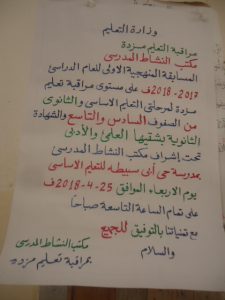 وزارة التعليم
مراقبة التعليم مزدة
مكتب النشاط المدرسي
المسابقة المنهجية الاولى للعام الدراسي
2017-2018ف على مستوى مراقبة تعليم
مزدة لمرحلتي التعليم الاساسي والثانوي
من الصفوف السادس والتاسع والشهادة
الثانوية بشقيها العلمي والأدبي
تحت إشراف مكتب النشاط المدرسي
بمدرسة حي أبي سبيطه للتعليم الاساسي
يوم الاربعاء الموافق 25-4-2018ف
على تمام الساعة التاسعة صباحاً
مع تمنياتنا بالتوفيق للجميع
والسلام
مكتب النشاط المدرسي
بمراقبة تعليم مزده